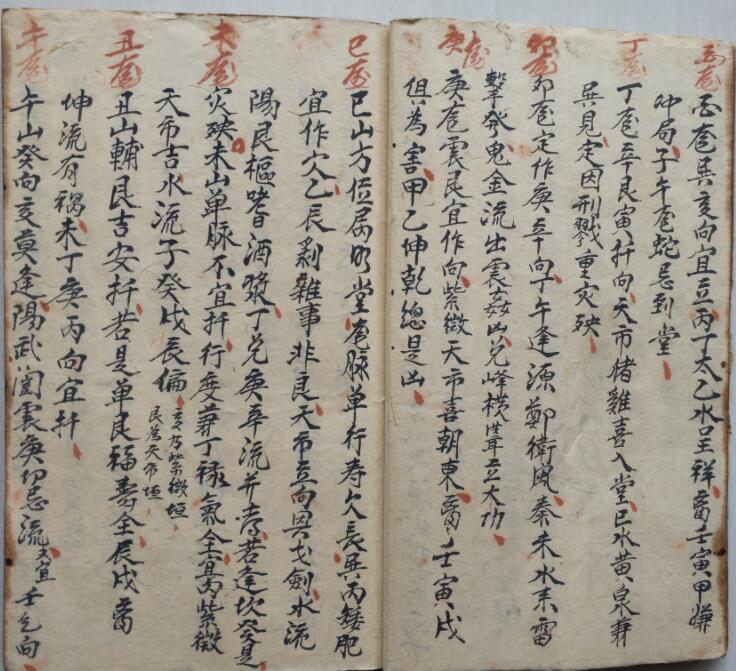 丙龙
丙龙巽亥向宜立丙丁太乙水呈祥畜壬寅甲嫌
冲局子午龙蛇忌到堂
丁龙
丁龙辛艮寅扦向天市猪雞喜入堂巳水黄泉兼
巽見定因刑戮重灾殃
卯龙
卯龙定作庚辛向丁午逢源鄭衛風秦未水来雷
擊發鬼金流出震姦凶兑峰横聳立大功
庚龙
庚龙震艮宜作向紫微天市喜朝東畜壬寅戌
俱為害甲乙坤乾總是凶
巳龙
巳山方位属明堂龙脉单行寿欠長巽丙矮肥
宜作穴乙辰剁雜事非良天市立向巽戈劍水流
陽艮樞嗜酒漿丁兑庚辛流并秀若逢坎癸是
未龙
灾殃未山单脉不宜扦行度兼丁禄氣全葛紫微
天市吉水流子癸戌辰偏
亥乃紫微垣
艮為天市垣
丑龙
丑山輔艮吉安扦若是单艮福寿全辰戌畜
坤流有禍未丁庚丙向宜扦
午龙
午山癸向亥莫逢陽武闔震庚切忌流又宜壬乞向